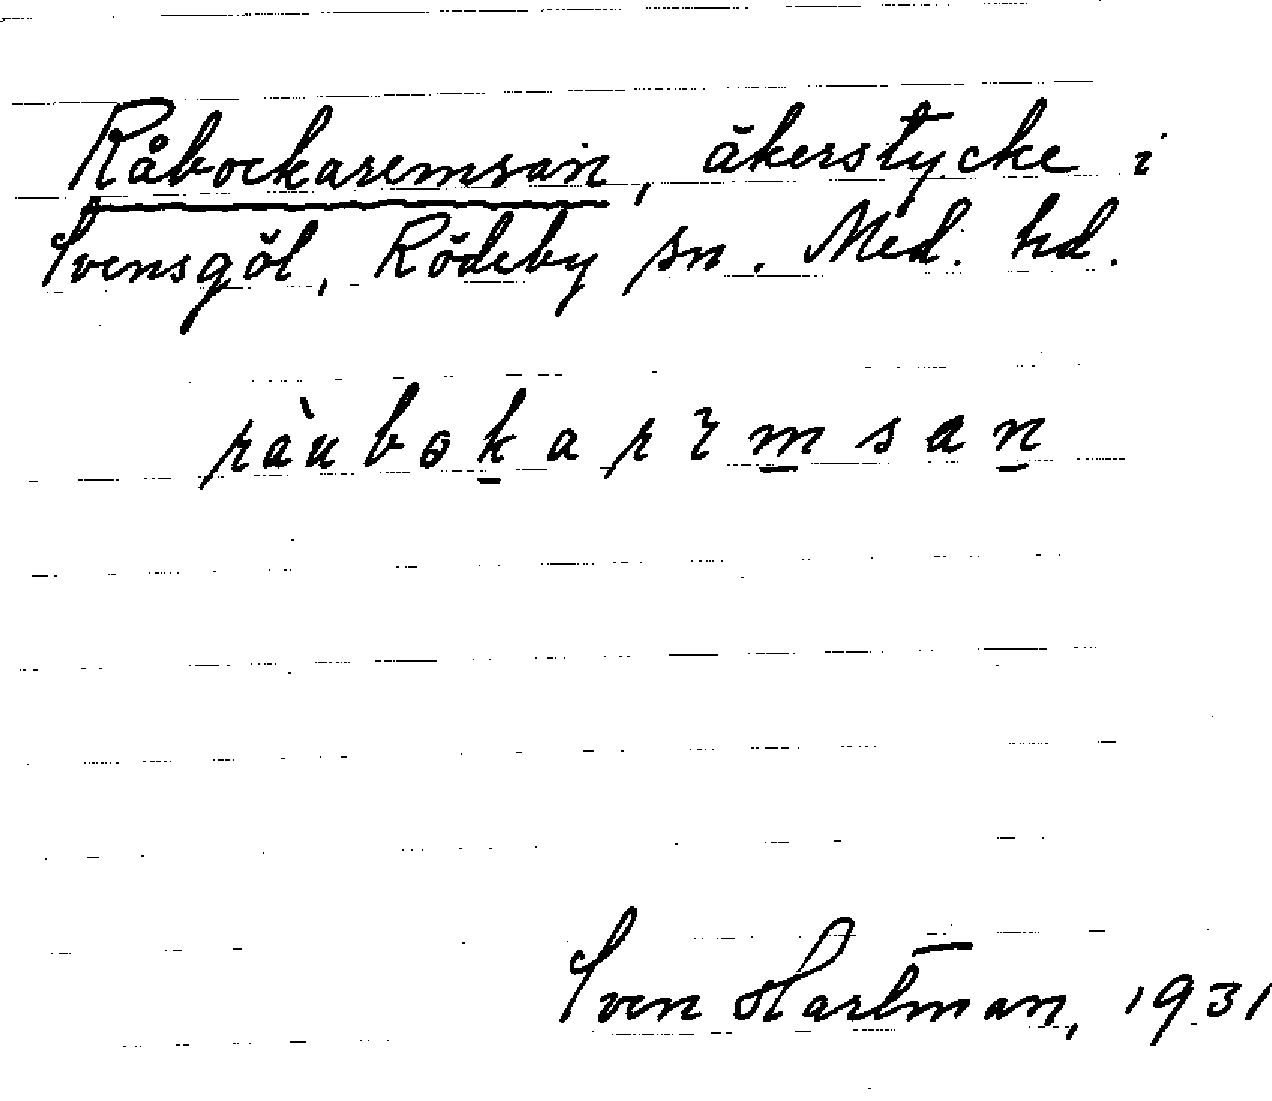 Råbockaremsan, åkerstycke i
Svensgöl, Rödeby sn. Med. hd.
ràubok̲arɩm̲san̲
Sven Hartman, 1931